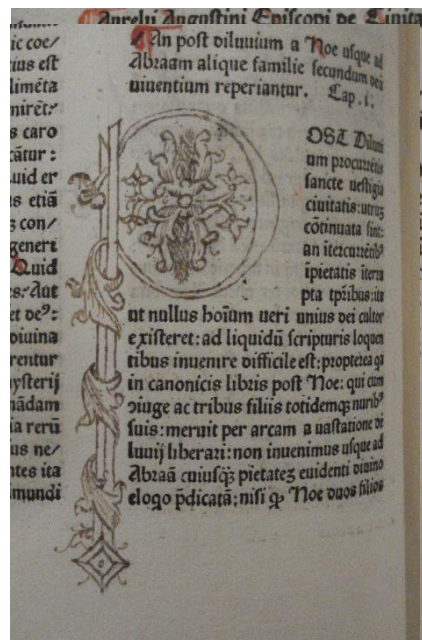 Aurelij Augustini Episcopi de Ciuita
ic coe/
ius est
limēta
mirēt:
s caro
cātur:
uid er
s etiā
ꝫ con/
generi
Quid
s: Aut
et deꝰ:
diuina
rentur
ysterij
nādam
ia rerū
us ne/
ntes ita
mundi
An post diluuium a Noe usque ad
Abraam alique familie secundum deū
uiuentium reperiantur. Cap. i.
POST Diluui
um procurrētis
sancte uestigia
ciuitatis: utruꝫ
cōtinuata sint:
an ītercurrētibꝰ
īpietatis
pta tpribus: ita
ut nullus hoīum ueri unius dei cultor
existeret: ad liquidū scripturis loquen
tibus inuenire difficile est: propterea qa
in canonicis libris post Noe: qui cum
ɔiuge ac tribus filiis totidemqꝫ nuribꝰ
suis: meruit per arcam a uastatione di
luuij liberari: non inuenimus usque ad
Abraā cuiusqꝫ pietateꝫ euidenti diuino
eloqo p̄dicatā; nisi ꝙ Noe duos filios